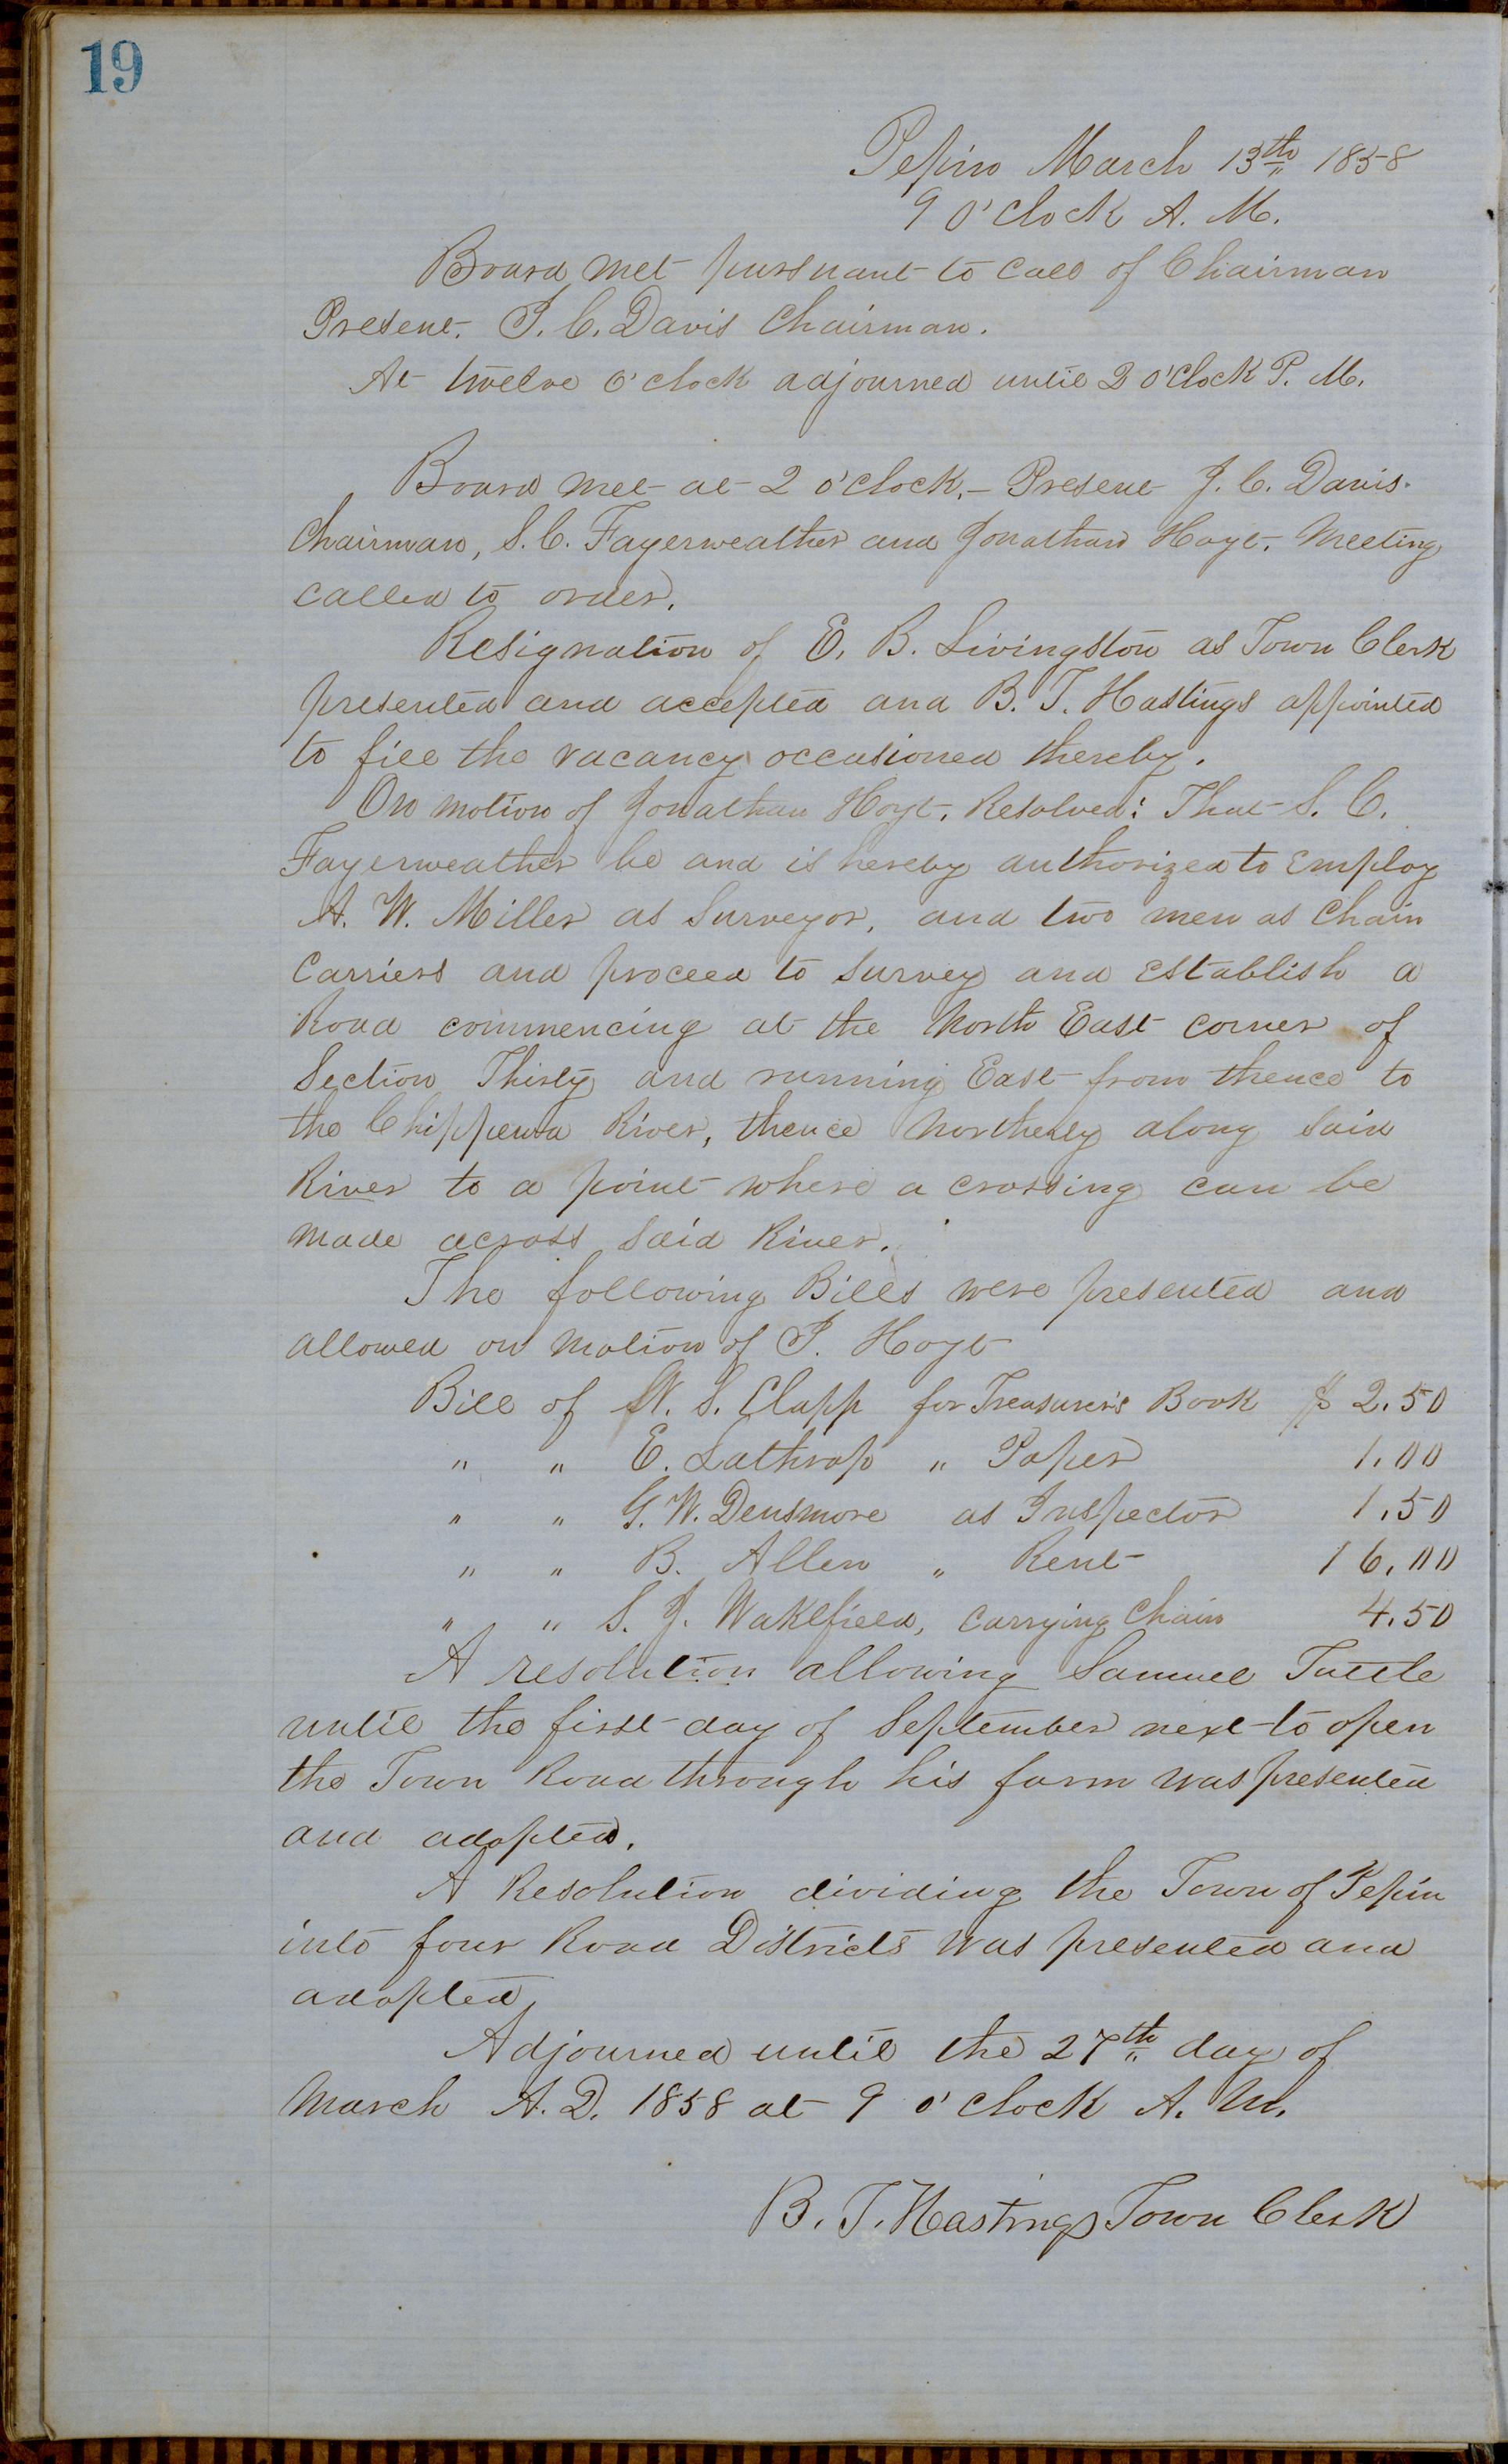 19
Pepin March 13th 1858
9 O'Clock A. M.
Board met pursuant to call of Chairman
Present. J. C. Davis Chairman.
At twelve O'clock adjourned until 2 O'Clock P. M.
Board met at 2 O'Clock. – Present J. C. Davis.
Chairman, S. C. Fayerweather and Jonathan Hoyt. Meeting
called to order.
Resignation of E. B. Livingston as Town Clerk
presented and accepted and B. T. Hastings appointed
to fill the vacancy occasioned thereby.
On motion of Jonathan Hoyt. Resolved: That S. C.
Fayerweather be and is hereby authorized to employ
A. W. Miller as Surveyor, and two men as Chain
Carriers and proceed to survey and establish a
Road commencing at the North East corner of
Section Thirty and running East from thence to
the Chippewa River, thence Northerly along said
River to a point where a crossing can be
made across said River.
The following Bills were presented and
allowed on motion of J. Hoyt
Bill of W. S. Clapp for Treasurer's Book $ 2.50
" " E. Lathrop " Paper 1.00
" " G. W. Densmore as Inspector 1.50
" " B. Allen " Rent 16.00
" " S. J. Wakefield, Carrying Chain 4.50
A resolution allowing Samuel Tuttle
until the first day of September next to open
the Town Road through his farm was presented
and adopted.
A Resolution dividing the Town of Pepin
into four Road Districts was presented and
adopted,
Adjourned until the 27th day of
March A. D. 1858 at 9 O'Clock A. M.
B. T. Hastings Town Clerk